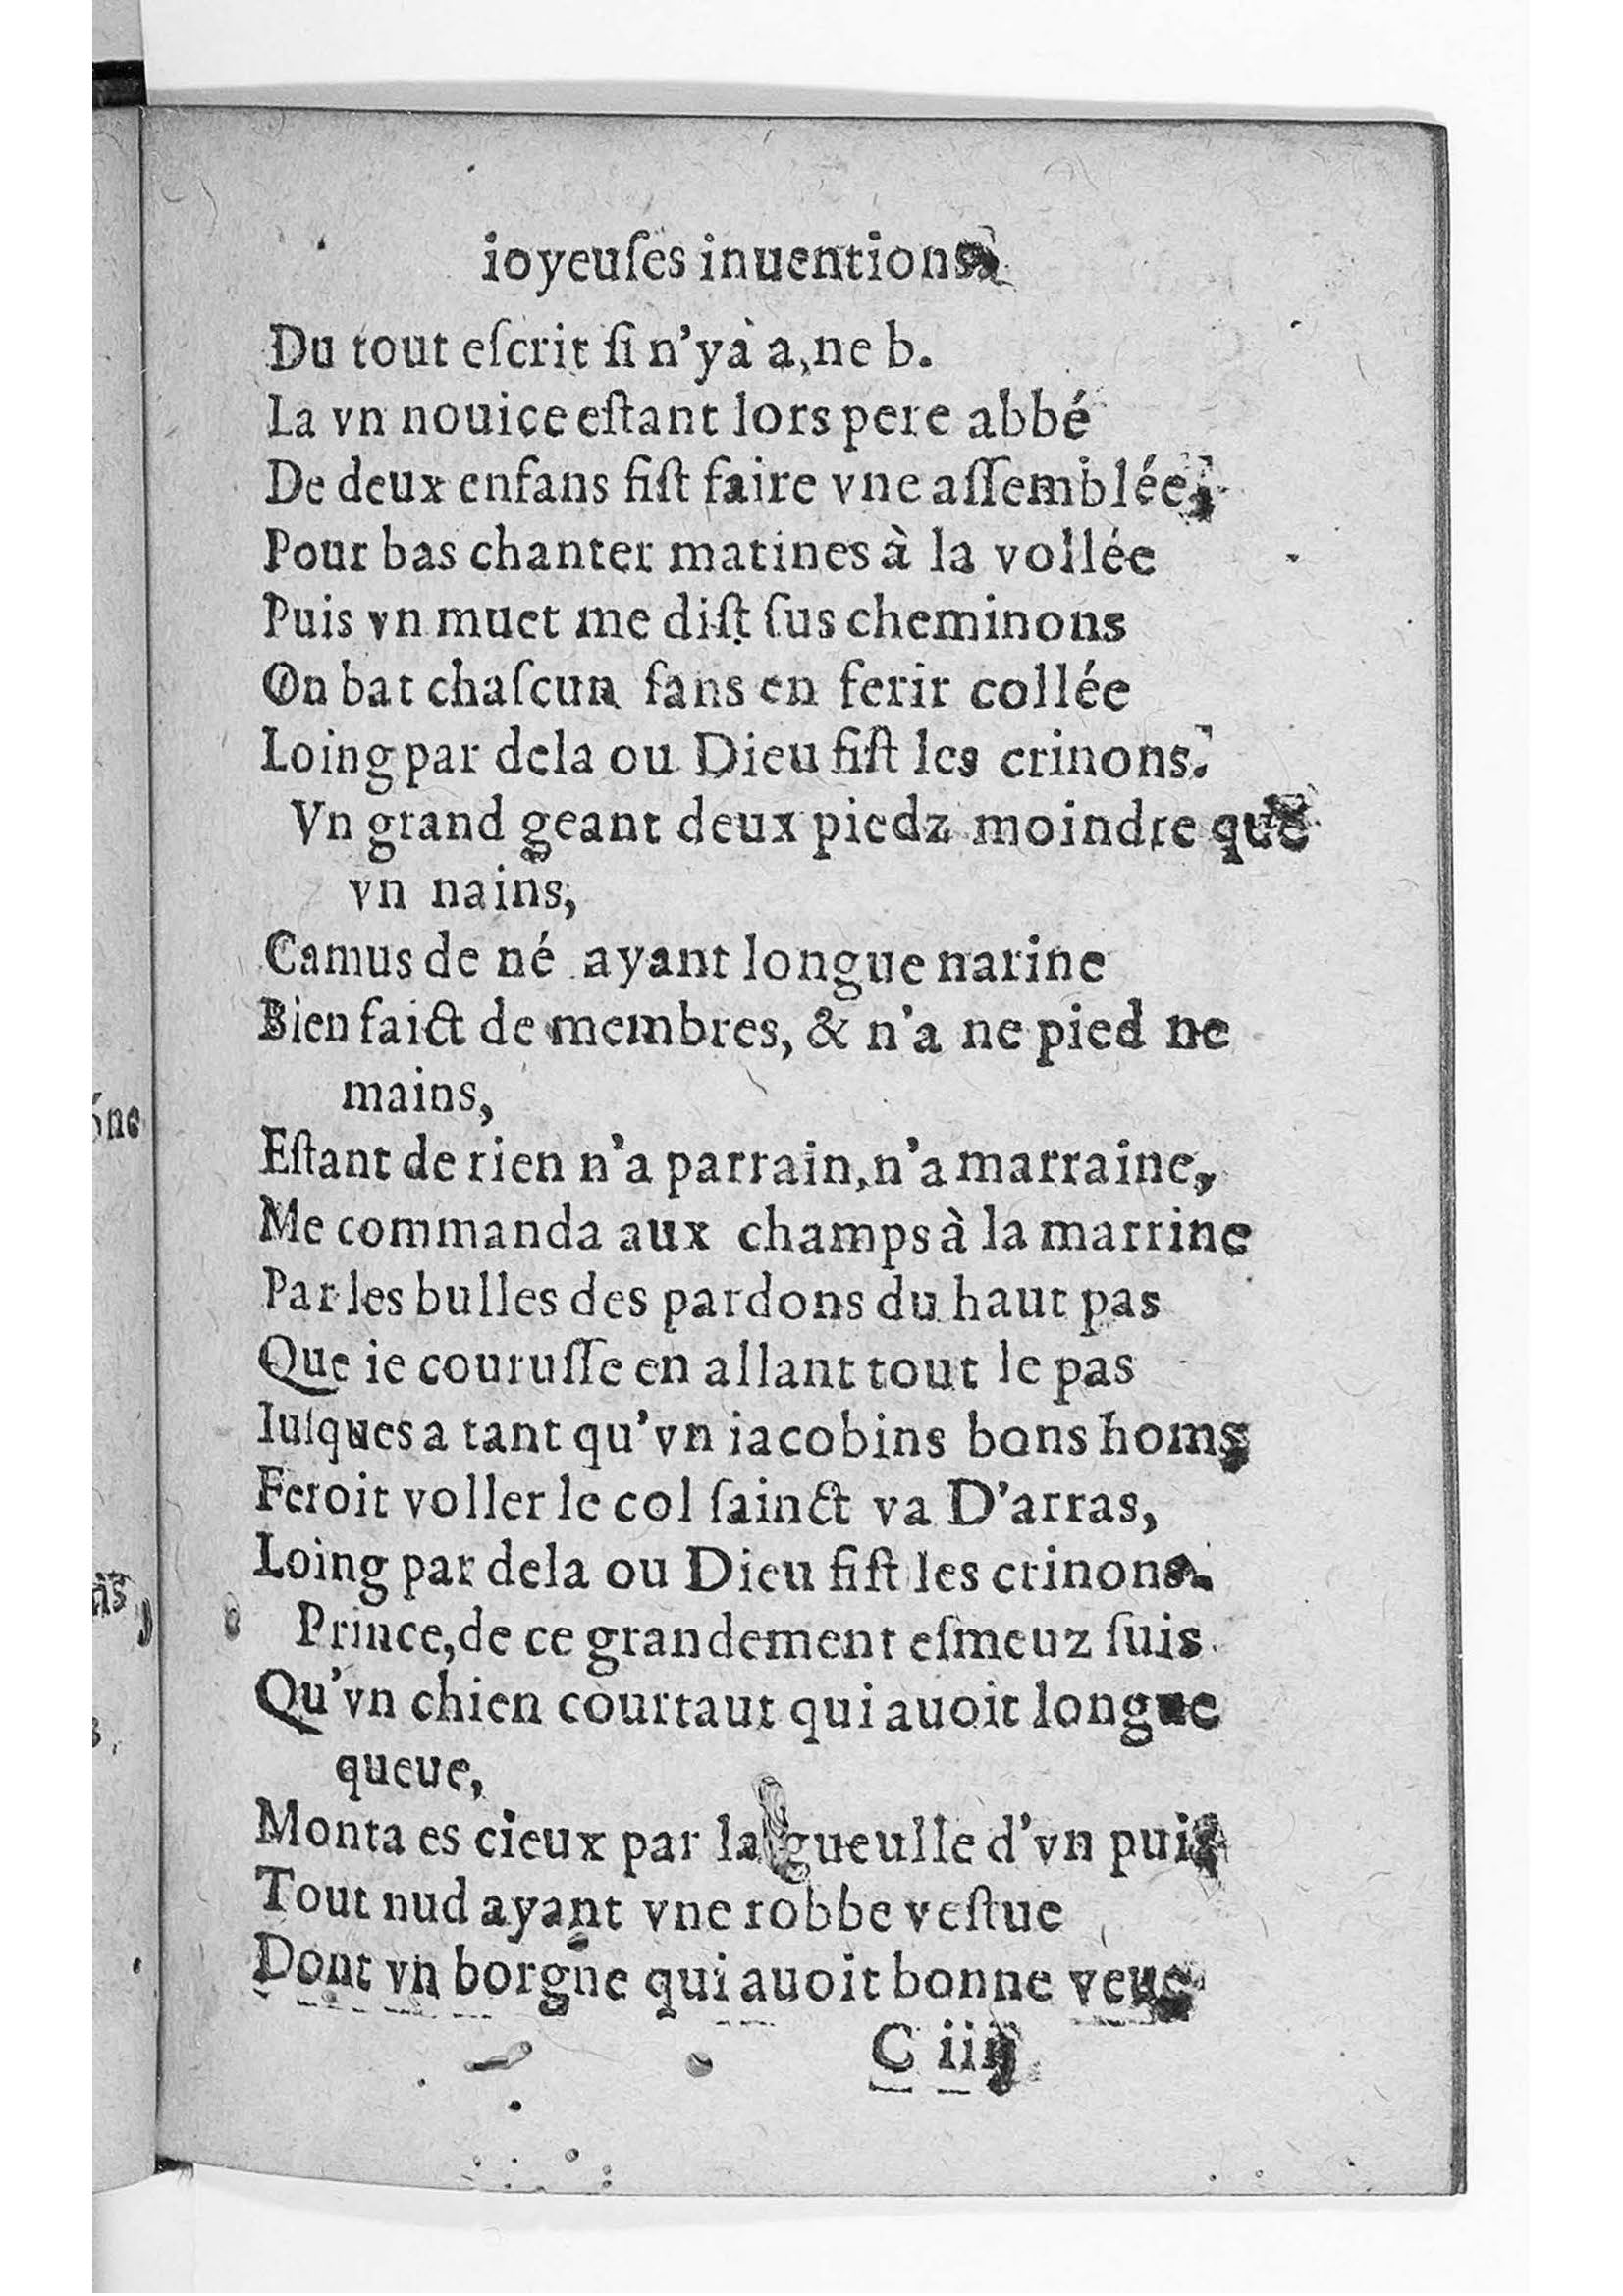 ioyeuſes inuentions
Du tout eſcrit ſi n'yà a, ne b.
La vn nouice eſtant lors pere abbé
De deux enfans fiſt faire vne aſſemblée,
Pour bas chanter matines à la vollée
Puis vn muet me diſt ſus cheminons
On bat chaſcun ſans en ferir collée
Loing par dela ou Dieu fiſt les crinons.
Vn grand geant deux piedz moindre que
vn nains,
Camus de né ayant longue narine
Bien faict de membres, & n'a ne pied ne
mains,
Eſtant de rien n'a parrain, n'a marraine,
Me commanda aux champs à la marrine
Par les bulles des pardons du haut pas
Que ie couruſſe en allant tout le pas
Iuſques a tant qu'vn iacobins bons homs
Feroit voller le col ſainct va D'arras,
Loing par dela ou Dieu fiſt les crinons.
Prince, de ce grandement eſmeuz ſuis
Qu'vn chien courtaut qui auoit longue
queue,
Monta es cieux par la gueulle d'vn puis
Tout nud ayant vne robbe veſtue
Dont vn borgne qui auoit bonne veue
C iiij